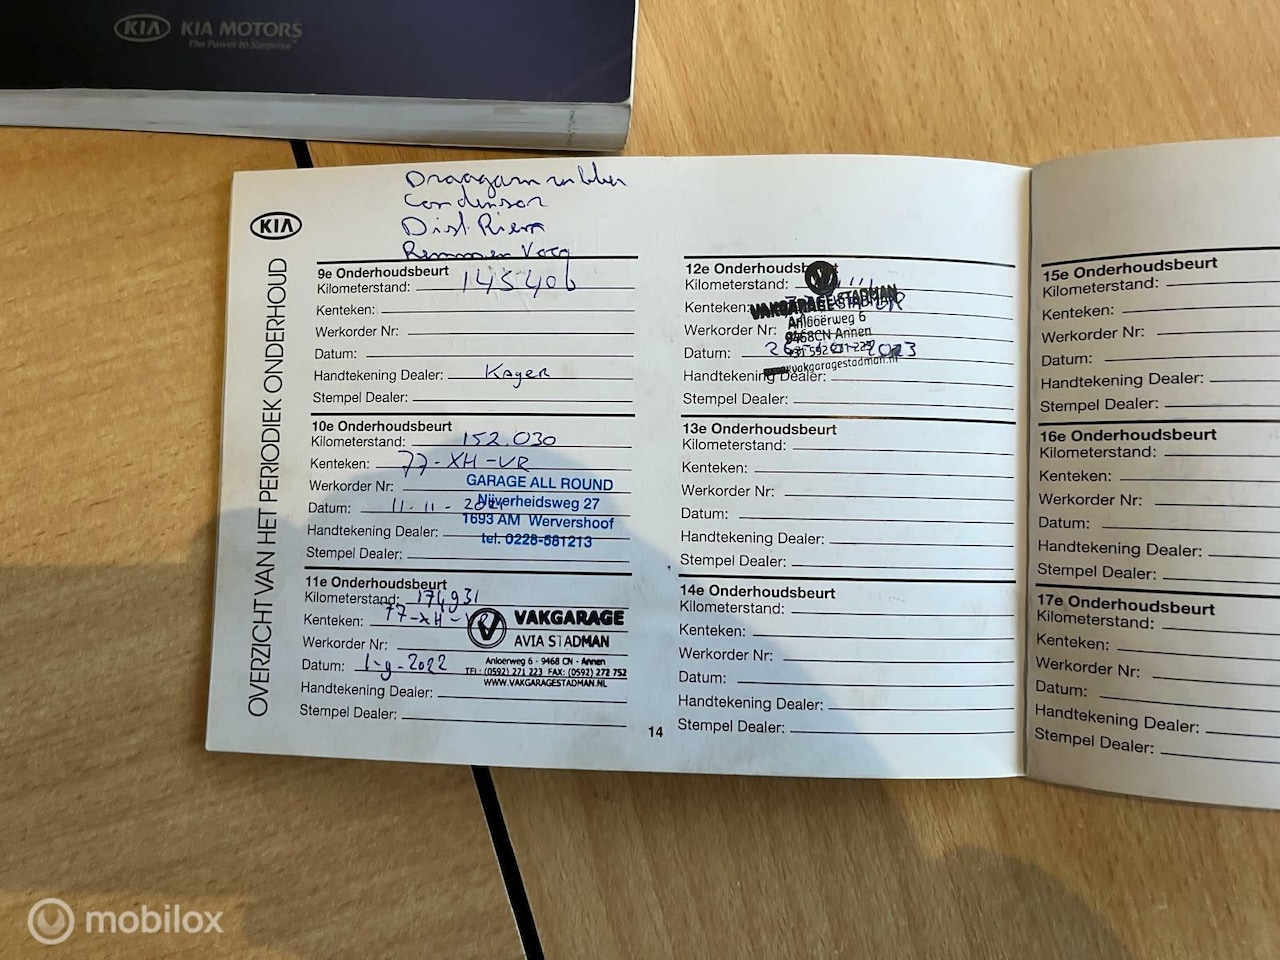 KIA KIA MOTORS
The Power to Surprise™
KIA
OVERZICHT VAN HET PERIODIEK ONDERHOUD
Draagarm rubber
Condensor
Dist. Riem
Remmen Voor
9e Onderhoudsbeurt
Kilometerstand: 145406
Kenteken:
Werkorder Nr:
Datum:
Handtekening Dealer: Kayer
Stempel Dealer:
10e Onderhoudsbeurt
Kilometerstand: 152.030
Kenteken: 77-XH-VR
Werkorder Nr:
GARAGE ALL ROUND
Nijverheidsweg 27
Datum: 11-11-2021
1693 AM Wervershoof
Handtekening Dealer:
tel. 0228-581213
Stempel Dealer:
11e Onderhoudsbeurt
Kilometerstand: 174931
Kenteken: 77-XH-VR
VAKGARAGE
AVIA STADMAN
Werkorder Nr:
Anloërweg 6 - 9468 CN - Annen
Datum: 1-9-2022
TEL: (0592) 271 223 FAX: (0592) 272 752
WWW.VAKGARAGESTADMAN.NL
Handtekening Dealer:
Stempel Dealer:
14
12e Onderhoudsbeurt
Kilometerstand:
Kenteken:
VAKGARAGE STADMAN
Anlooërweg 6
Werkorder Nr:
9468CN Annen
Datum: 2023
+31 592 271 223
www.vakgaragestadman.nl
Handtekening Dealer:
Stempel Dealer:
13e Onderhoudsbeurt
Kilometerstand:
Kenteken:
Werkorder Nr:
Datum:
Handtekening Dealer:
Stempel Dealer:
14e Onderhoudsbeurt
Kilometerstand:
Kenteken:
Werkorder Nr:
Datum:
Handtekening Dealer:
Stempel Dealer:
15e Onderhoudsbeurt
Kilometerstand:
Kenteken:
Werkorder Nr:
Datum:
Handtekening Dealer:
Stempel Dealer:
16e Onderhoudsbeurt
Kilometerstand:
Kenteken:
Werkorder Nr:
Datum:
Handtekening Dealer:
Stempel Dealer:
17e Onderhoudsbeurt
Kilometerstand:
Kenteken:
Werkorder Nr:
Datum:
Handtekening Dealer:
Stempel Dealer:
mobilox